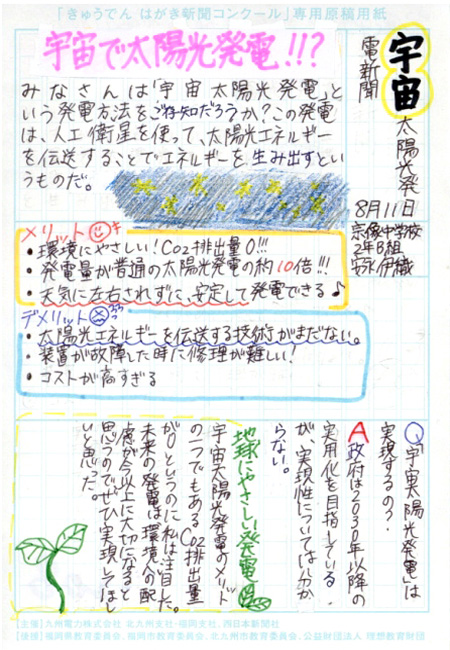 「きゅうでん はがき新聞コンクール」専用原稿用紙
宇宙太陽光発
電新聞
8月11日
宗像中学校
2年B組
伊織
宇宙で太陽光発電!!?
みなさんは「宇宙太陽光発電」と
いう発電方法をご存知だろうか?この発電
は、人工衛星を使って、太陽光エネルギー
を伝送することでエネルギーを生み出すとい
うものだ。
メリット
・環境にやさしい!CO2排出量0!!!
・発電量が普通の太陽光発電の約10倍!!!
・天気に左右されずに、安定して発電できる♪
デメリット
・太陽光エネルギーを伝送する技術がまだない。
・装置が故障した時に修理が難しい!
・コストが高すぎる
Q「宇宙太陽光発電」は
実現するの?
A政府は2030年以降の
実用化を目指している
が、実現性については分か
らない。
地球にやさしい発電
宇宙太陽光発電のメリット
の一つでもあるCO2排出量
が0というのに私は注目した。
未来の発電は、環境への配
慮が今以上に大切になると
思うのでぜひ実現してほし
いと思った。
【主催】九州電力株式会社 北九州支社・福岡支社、西日本新聞社
【後援】福岡県教育委員会、福岡市教育委員会、北九州市教育委員会、公益財団法人 理想教育財団